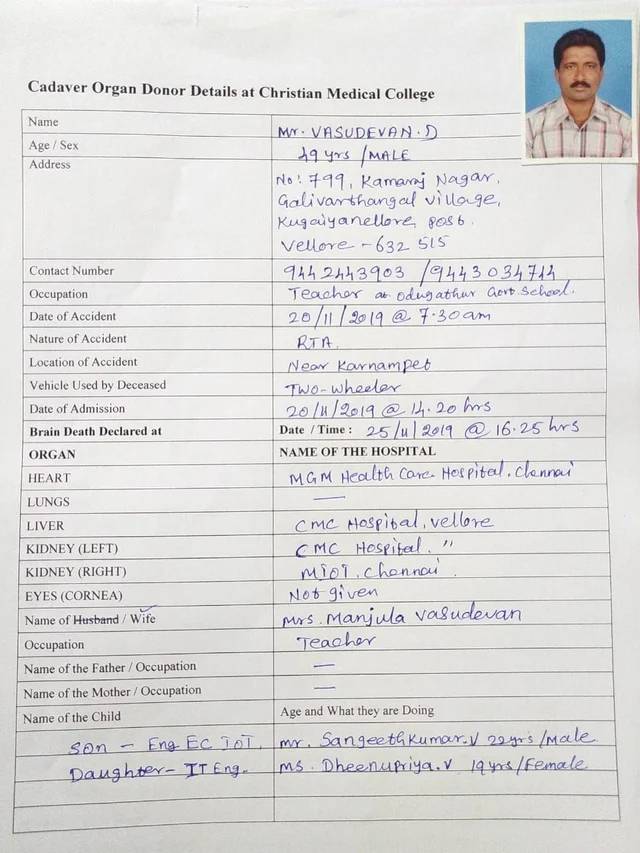 Cadaver Organ Donor Details at Christian Medical College
Name Mr. VASUDEVAN.D
Age / Sex 49 yrs /MALE
Address No: 799, Kamaraj Nagar,
Galivarthangal village,
Kugaiyanellore, post.
Vellore - 632 515
Contact Number 9442443903 /9443034714
Occupation Teacher at Odugathur Govt. School.
Date of Accident 20/11/2019 @ 7.30am
Nature of Accident RTA.
Location of Accident Near Karnampet
Vehicle Used by Deceased Two-wheeler
Date of Admission 20/11/2019 @ 14.20 hrs
Brain Death Declared at Date / Time : 25/11/2019 @ 16.25 hrs
ORGAN NAME OF THE HOSPITAL
HEART MGM Health Care Hospital, Chennai
LUNGS —
LIVER CMC Hospital, vellore
KIDNEY (LEFT) CMC Hospital. "
KIDNEY (RIGHT) MIOT, Chennai.
EYES (CORNEA) Not given
Name of Husband / Wife Mrs. Manjula Vasudevan
Occupation Teacher
Name of the Father / Occupation —
Name of the Mother / Occupation —
Name of the Child Age and What they are Doing
Son - Eng EC IOT. Mr. Sangeethkumar.V 22yrs /Male
Daughter - IT Eng. MS. Dheenupriya.V 19yrs/Female